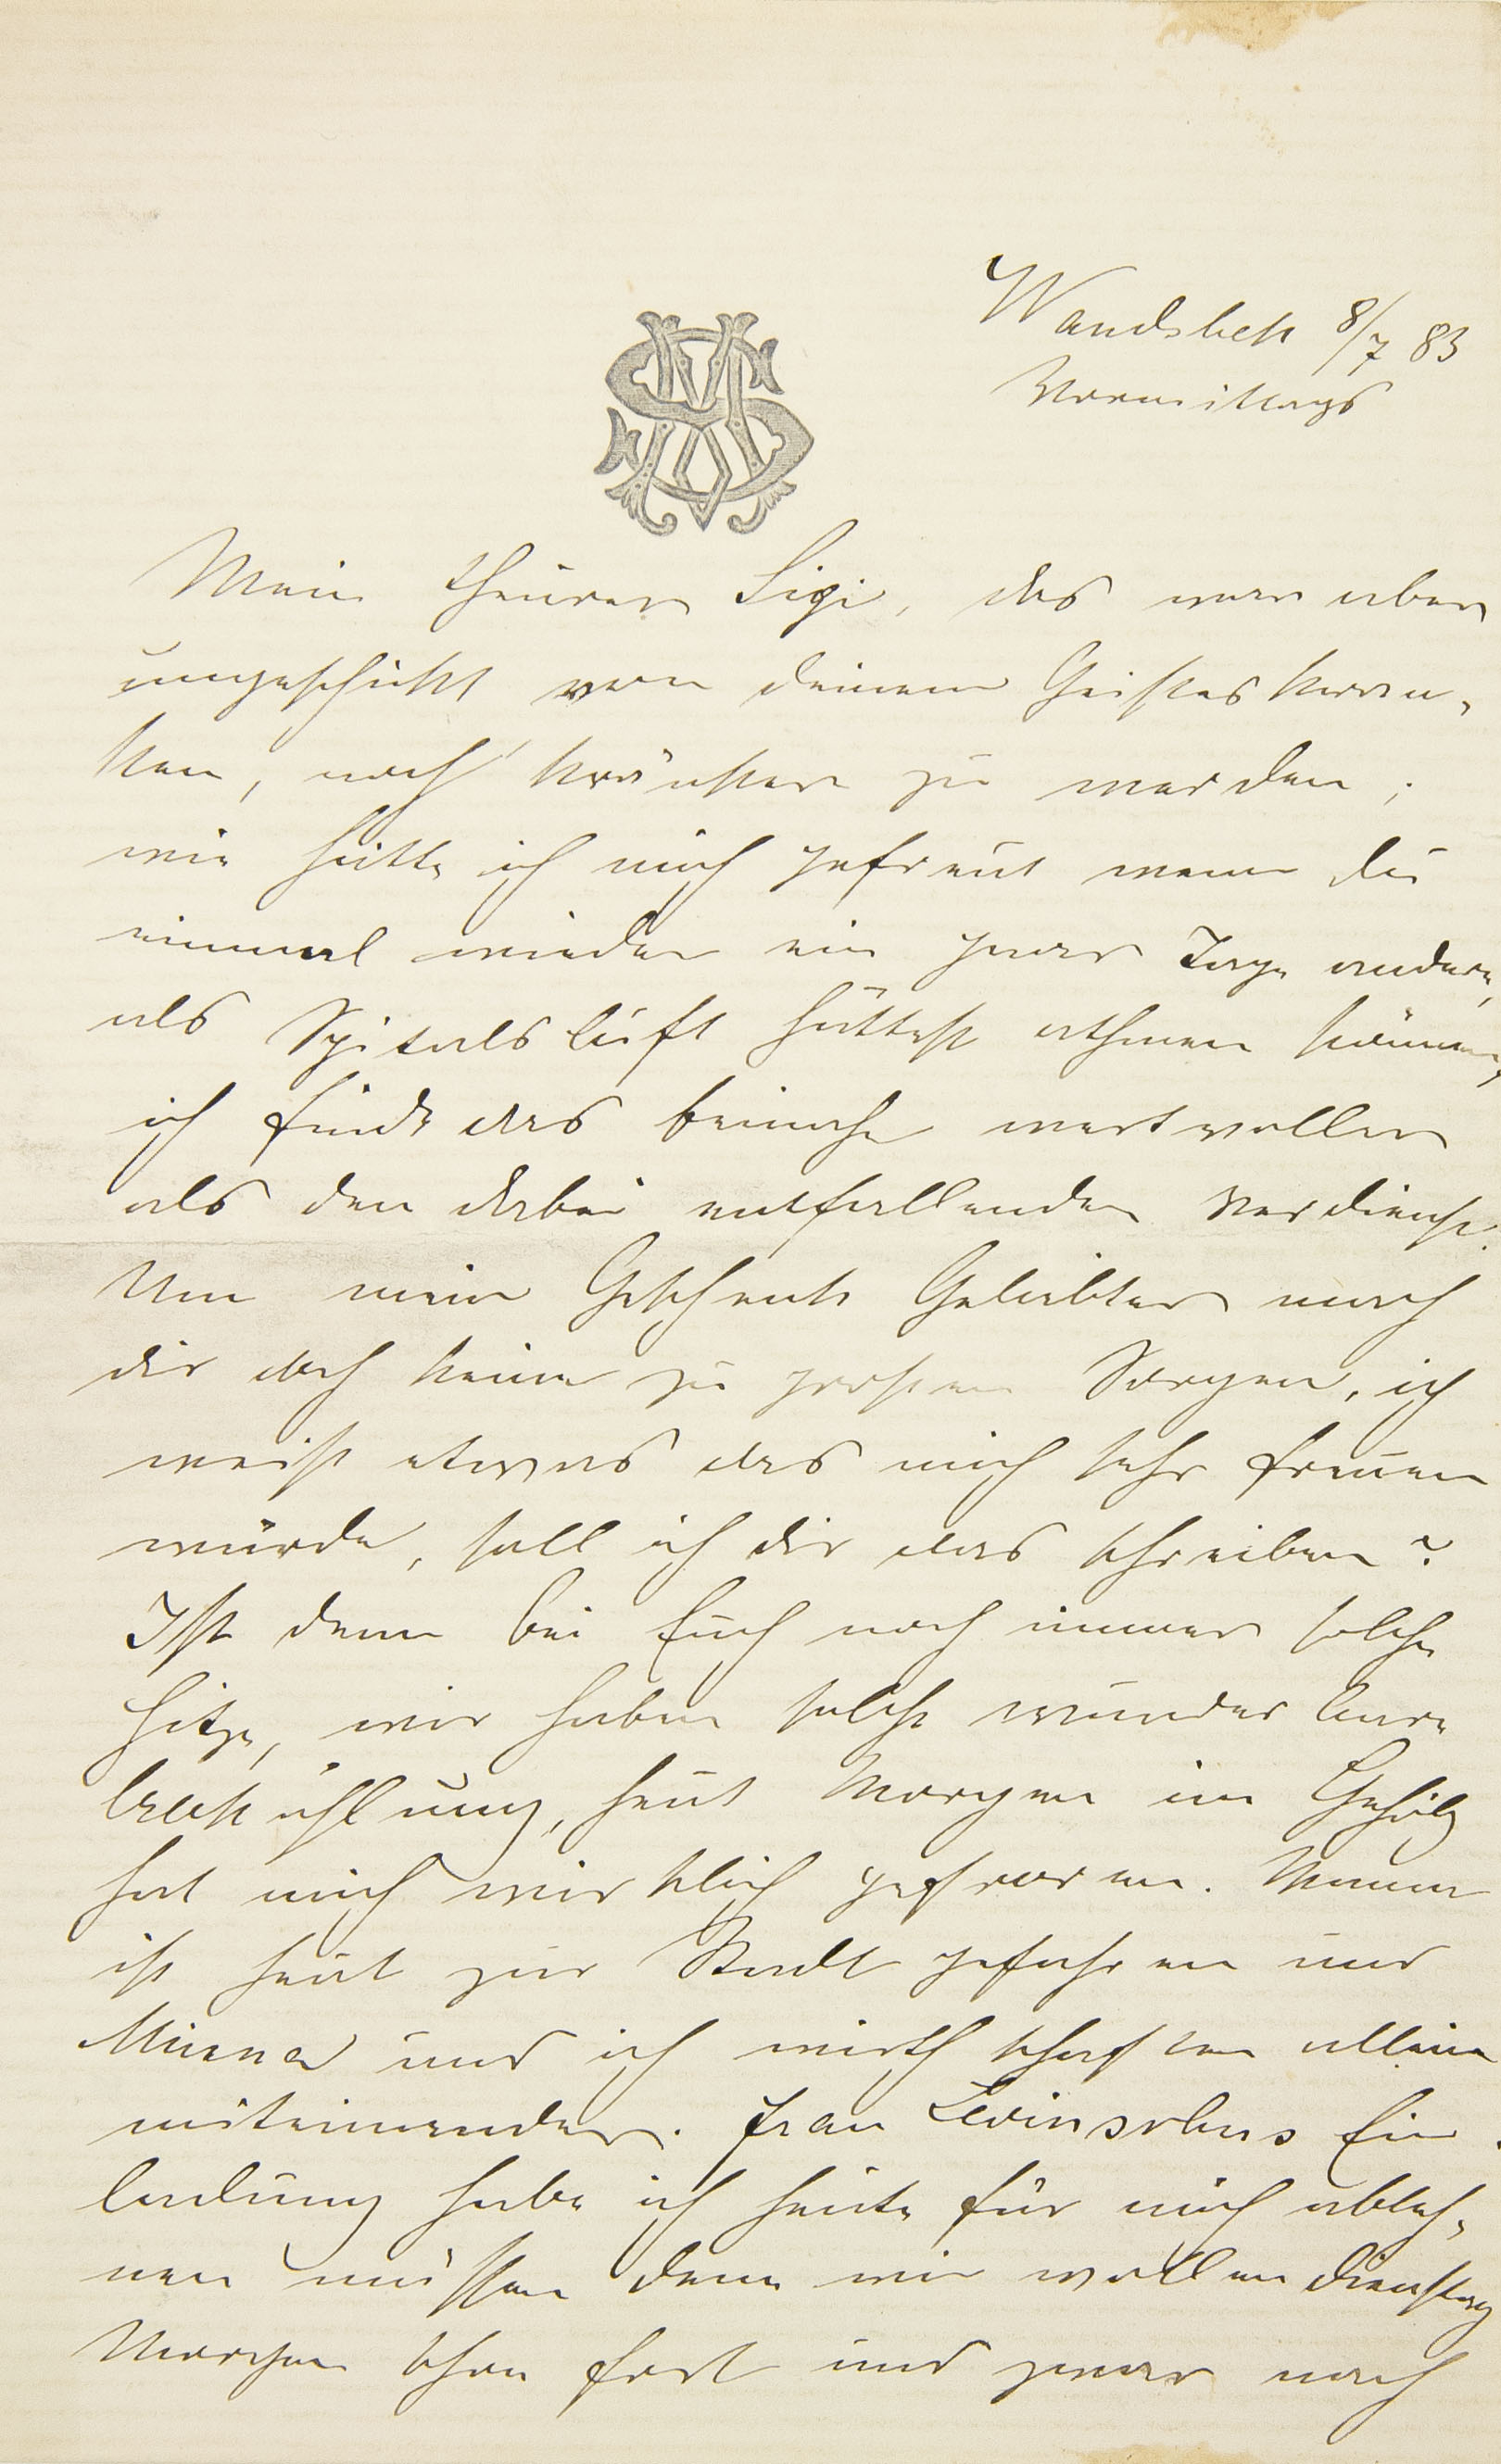 Wandsbek 8/7 83
Vormittags
Mein theurer Sigi, das war aber
ungeschickt von deinem Geisteskran-
ken, noch kränker zu werden,
wie hätte ich mich gefreut wenn du
einmal wieder ein paar Tage andere,
als Spitalsluft hättest athmen können,
ich finde das beinahe wertvoller
als den dabei entfallenden Verdienst.
Um mein Geschenk Geliebter mach
dir doch keine zu großen Sorgen, ich
weiß etwas das mich sehr freuen
würde, soll ich dir das schreiben?
Ist denn bei Euch noch immer solche
Hitze, wir haben solch wunderbare
Abkühlung, heut Morgen im Gehölz
hat mich wirklich gefroren. Mama
ist heut zur Stadt gefahren und
Minna und ich wirthschaften allein
miteinander. Frau Levinsohns Ein-
ladung habe ich heute für mich ableh-
nen müssen denn wir wollen Dienstag
Morgen schon fort und zwar nach